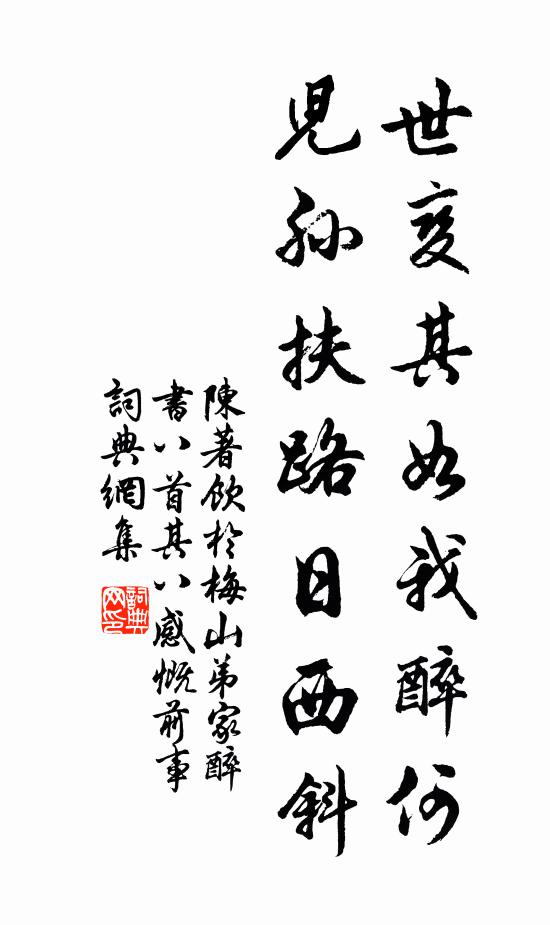 世变其如我醉何
児孙扶路日西斜
陳著飲於梅山弟家醉
書八首其八感慨前事
詞典網集
詞典网印